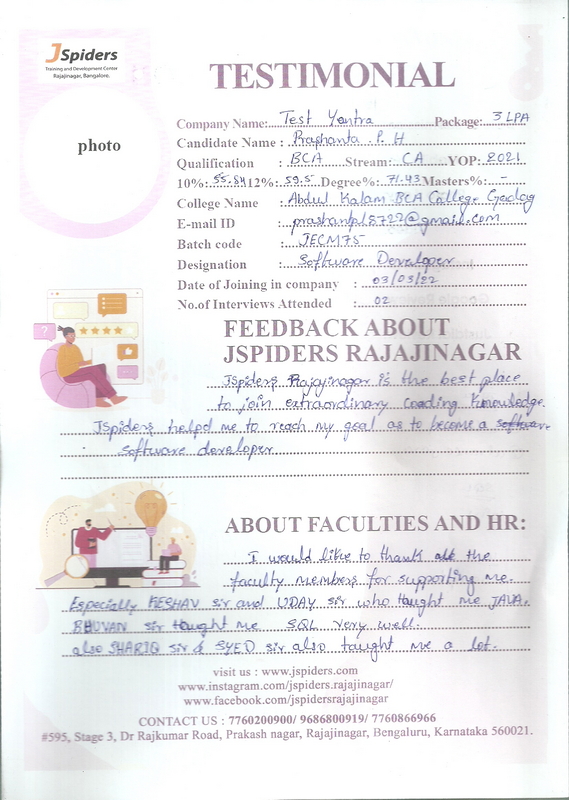 JSpiders
Training and Development Center
Rajajinagar, Bangalore.
TESTIMONIAL
photo
Company Name: Test Yantra Package: 3 LPA
Candidate Name : Prashanta . P. H
Qualification : BCA Stream: CA YOP: 2021
10%: 55.84 12%: 59.5 Degree%: 71.43 Masters%: -
College Name : Abdul Kalam BCA College Gadag
E-mail ID :
Batch code : JECM75
Designation : Software Developer
Date of Joining in company : 03/03/22
No.of Interviews Attended : 02
FEEDBACK ABOUT
JSPIDERS RAJAJINAGAR
JSpiders Rajajinagar is the best place
to join extraordinary Coading Knowledge.
JSpiders helped me to reach my goal as to become a software
Software developer
ABOUT FACULTIES AND HR:
I would like to thank all the
faculty members for supporting me.
Especially KESHAV sir and UDAY sir who taught me JAVA.
BHUVAN sir taught me SQL very well.
also SHARIQ sir & SYED sir also taught me a lot.
visit us : www.jspiders.com
www.instagram.com/jspiders.rajajinagar/
www.facebook.com/jspidersrajajinagar
CONTACT US : 7760200900/ 9686800919/ 7760866966
#595, Stage 3, Dr Rajkumar Road, Prakash nagar, Rajajinagar, Bengaluru, Karnataka 560021.